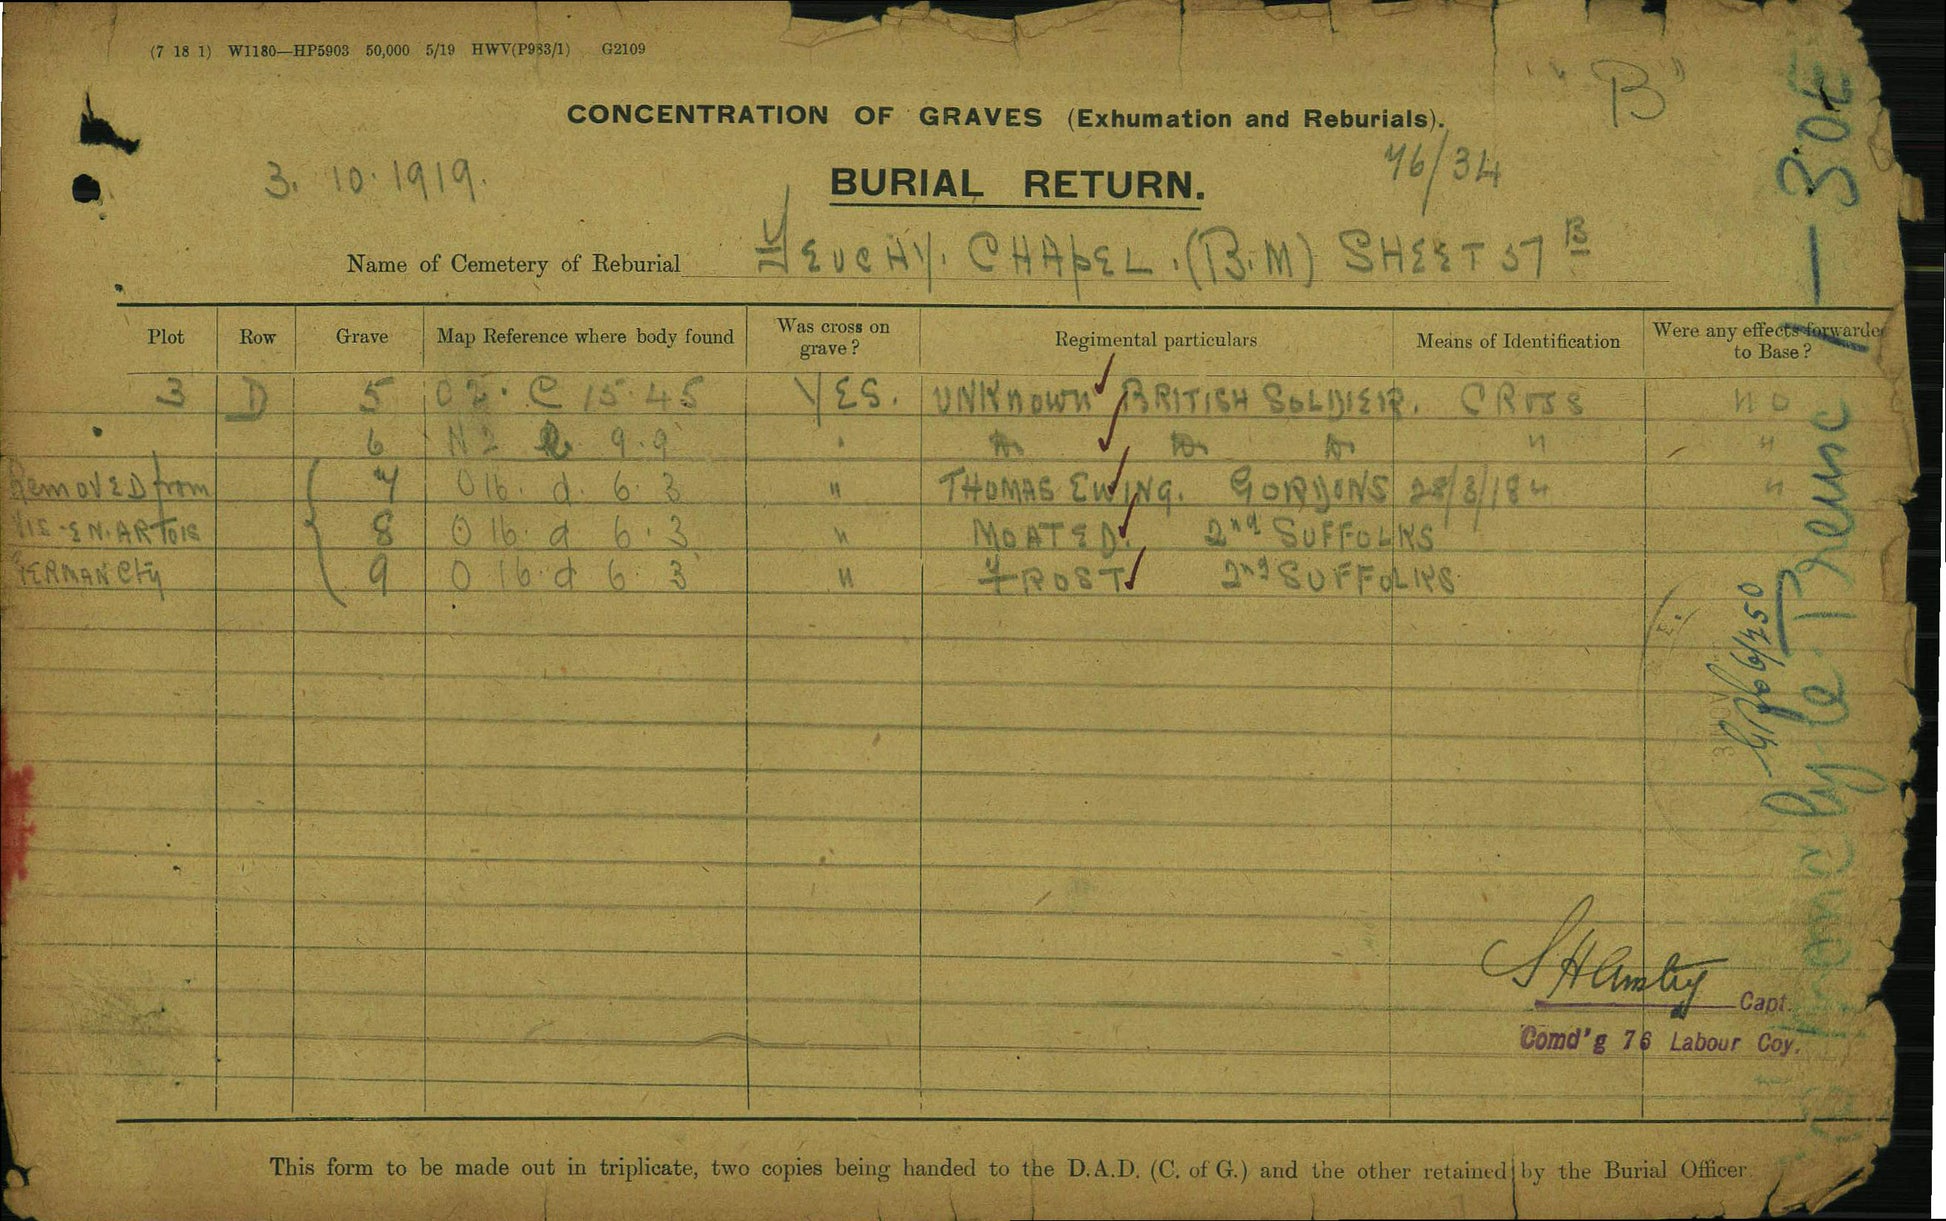 (7 18 1) W1180—HP5903 50,000 5/19 HWV(P983/1) G2109
"B"
CONCENTRATION OF GRAVES (Exhumation and Reburials).
3. 10. 1919. BURIAL RETURN. 76/34
Name of Cemetery of Reburial FEUCHY. CHAPEL. (B.M) SHEET 57 B
Plot Row Grave Map Reference where body found Was cross on grave? Regimental particulars Means of Identification Were any effects forwarded to Base?
3 D 5 O2. C 15.45 YES. UNKNOWN BRITISH SOLDIER. CROSS NO
6 N2 9.9 " Do Do Do " "
Removed from 7 O16. d. 6.3 " THOMAS EWING. GORDONS 28/3/18 " "
VIS-EN-ARTOIS 8 O16. d 6.3 " MOATED. 2nd SUFFOLKS
GERMAN Cty 9 O16.d 6.3 " FROST 2nd SUFFOLKS
Capt.
Comd'g 76 Labour Coy.
This form to be made out in triplicate, two copies being handed to the D.A.D. (C. of G.) and the other retained by the Burial Officer